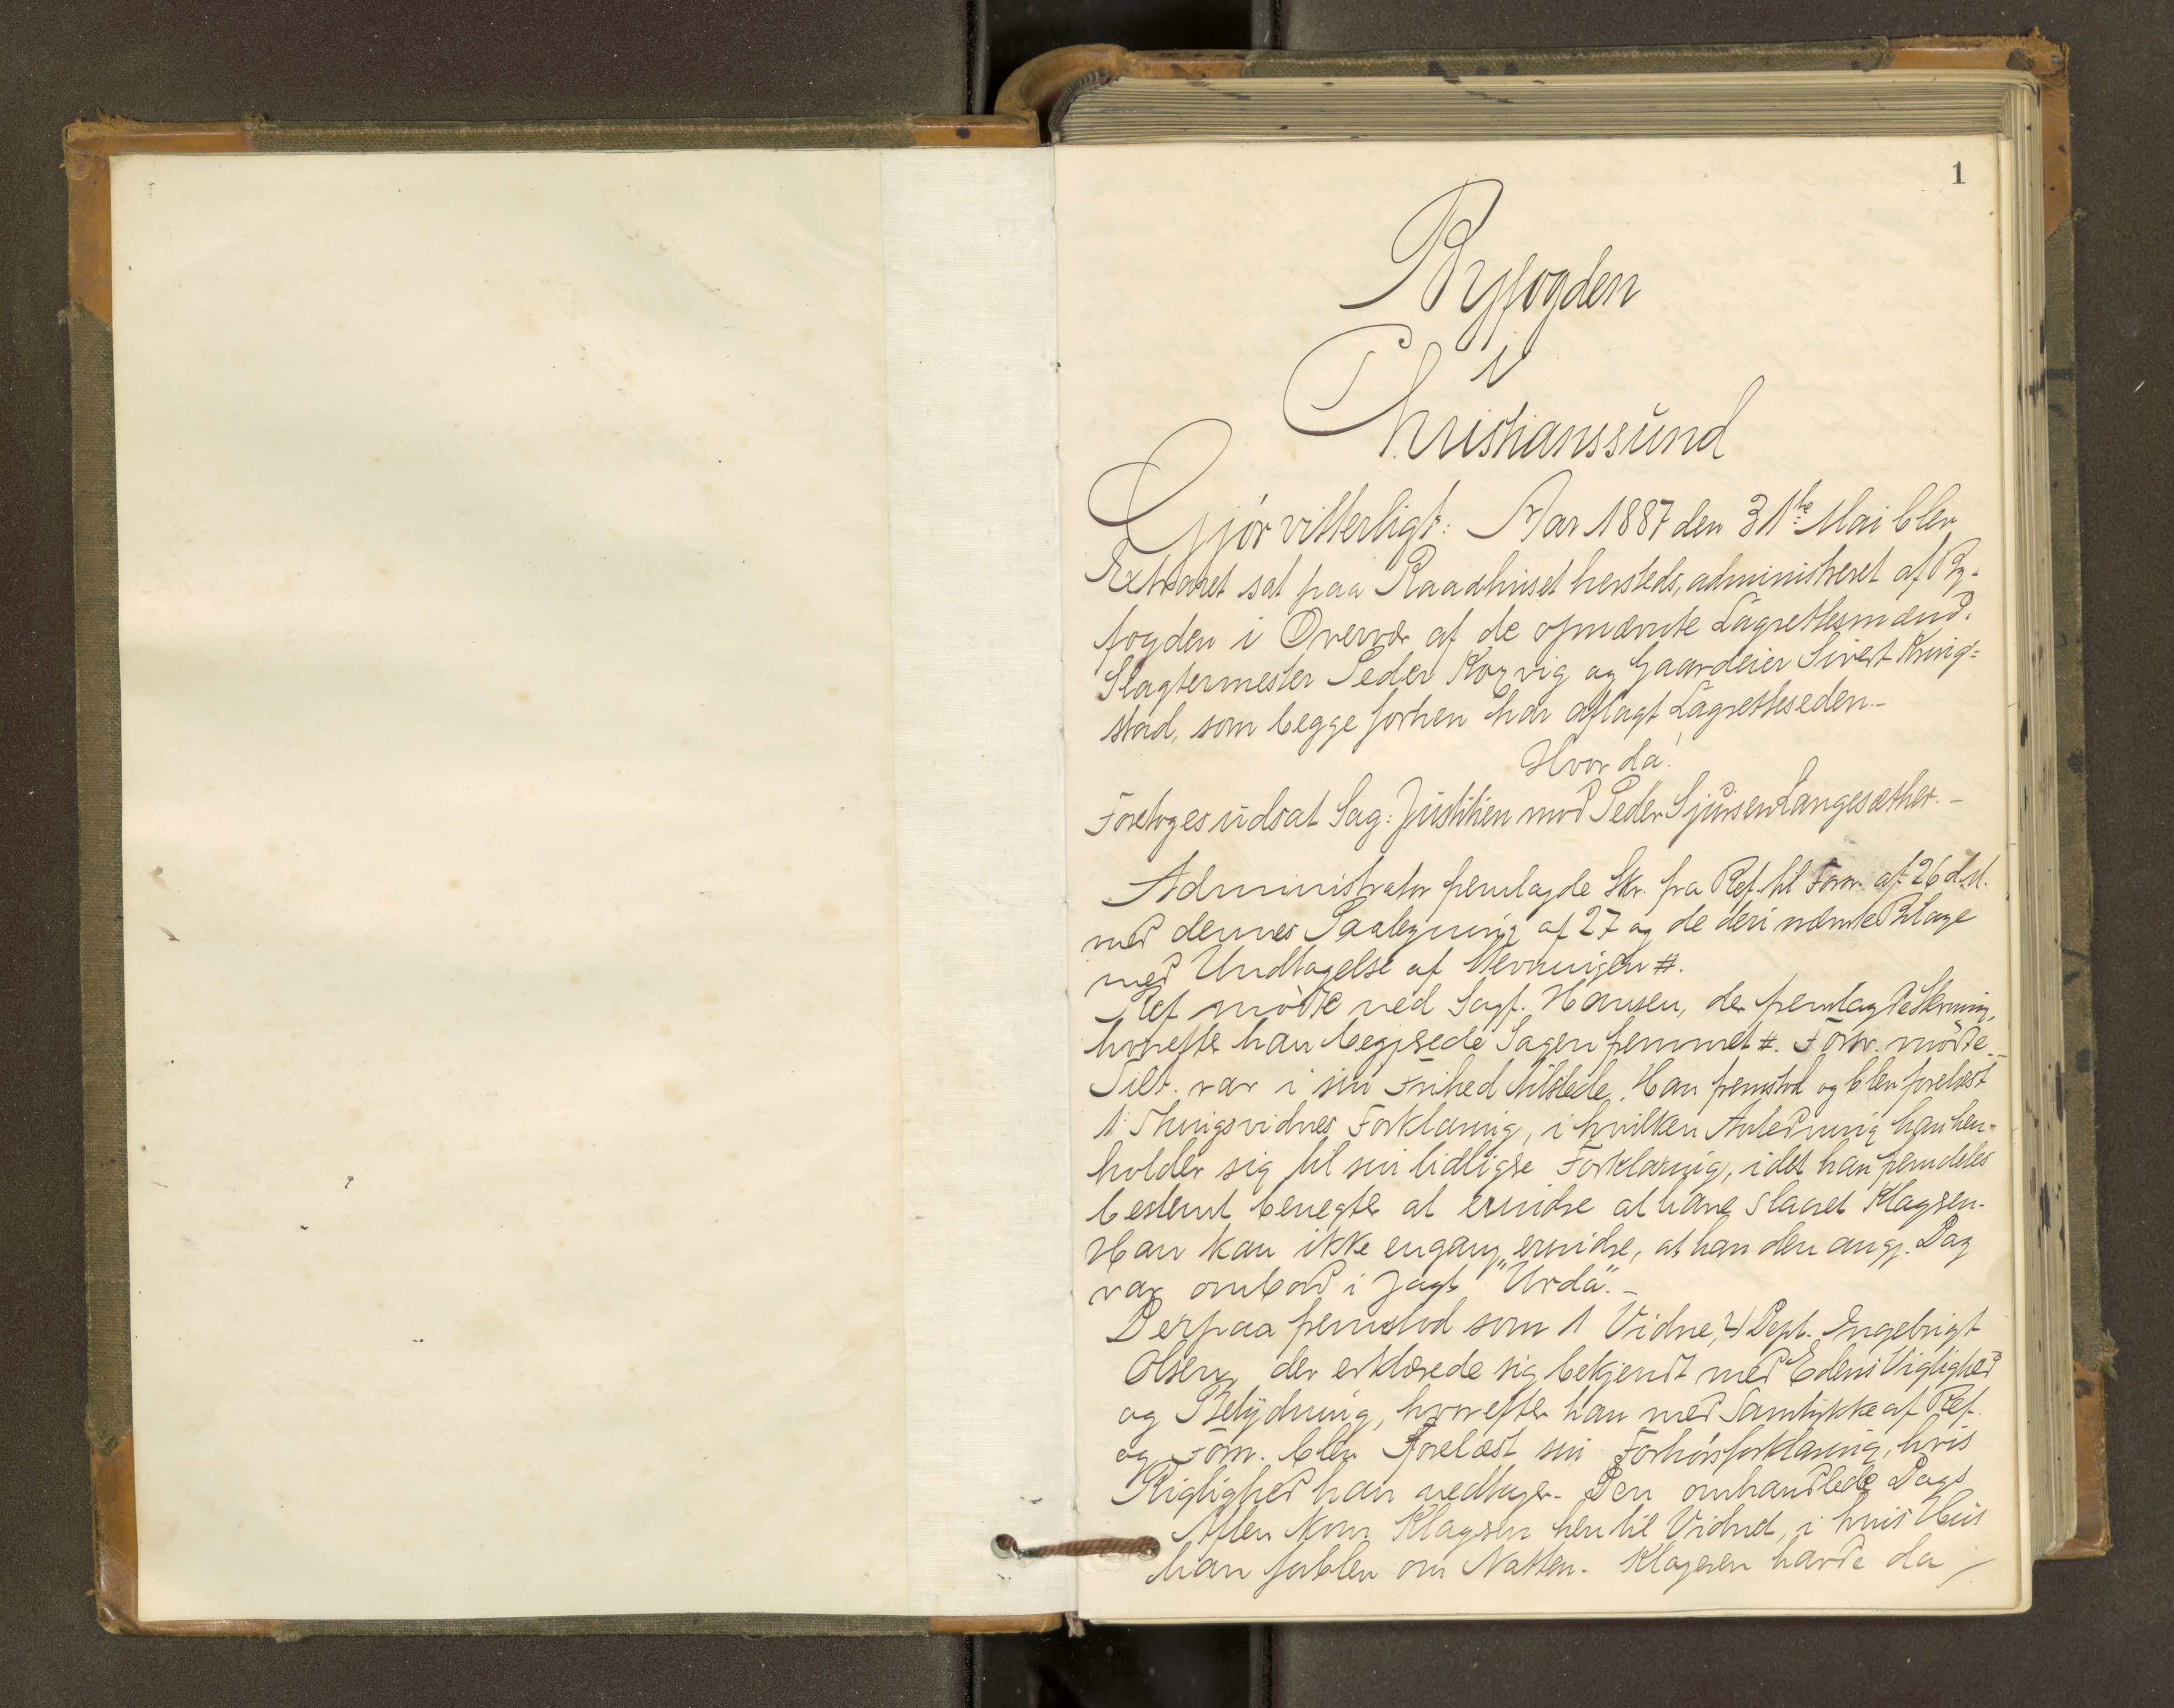 1
Byfogden
i
Christianssund
Gjör vitterligt: Aar 1887 den 31te Mai blev
Extraret sat paa Raadhuset hersteds, administreret af By-
fogden i Overvær af de opnævnte Lagrettesmænd.
Slagtermester Peder Korsvig og Gaardeier Sivert Kring=
stad, som begge forhen har aflagt Lagretteseden.-
Hvor da!
Foretoges udsat Sag: Justitien mod Peder Sjursen Langesæther. -
Administrator fremlagde Skr. fra Ref. til Forsv. af 26 d.M.
med dennes Paategning af 27 og de deri nævnte Bilage
med Undtagelse af Stevningen #.
Ref mödte ved Sagf. Hansen, der fremlagde Stevning,
hvorefter han begjærede Sagen fremmet #. Forsv. mödte. -
Tilt. var i sin Frihed tilstede. Han fremstod og blev forelæst
1. Thingsvidnes Forklaring, i hvilken Anledning han hen-
holder sig til sin tidligere Forklaring, idet han fremdeles
bestemt benegter at erindre at have slaaet Klageren.
Han kan ikke engang erindre, at han den angj. Dag
var ombord i Jagt "Urda". -
Derpaa fremstod som 1 Vidne, 4) Dept. Ingebrigt
Olsen, der erklærede sig bekjendt med Edens Vigtighed
og Betydning, hvorefter han med Samtykke af Ref.
og Forsv. blev forelæst sin Forhörsforklaring, hvis
Rigtighed han vedtager. Den omhandlede Dags
Aften kom Klageren hen til Vidnet, i hvis Hus
han forblev om Natten. Klageren havde da